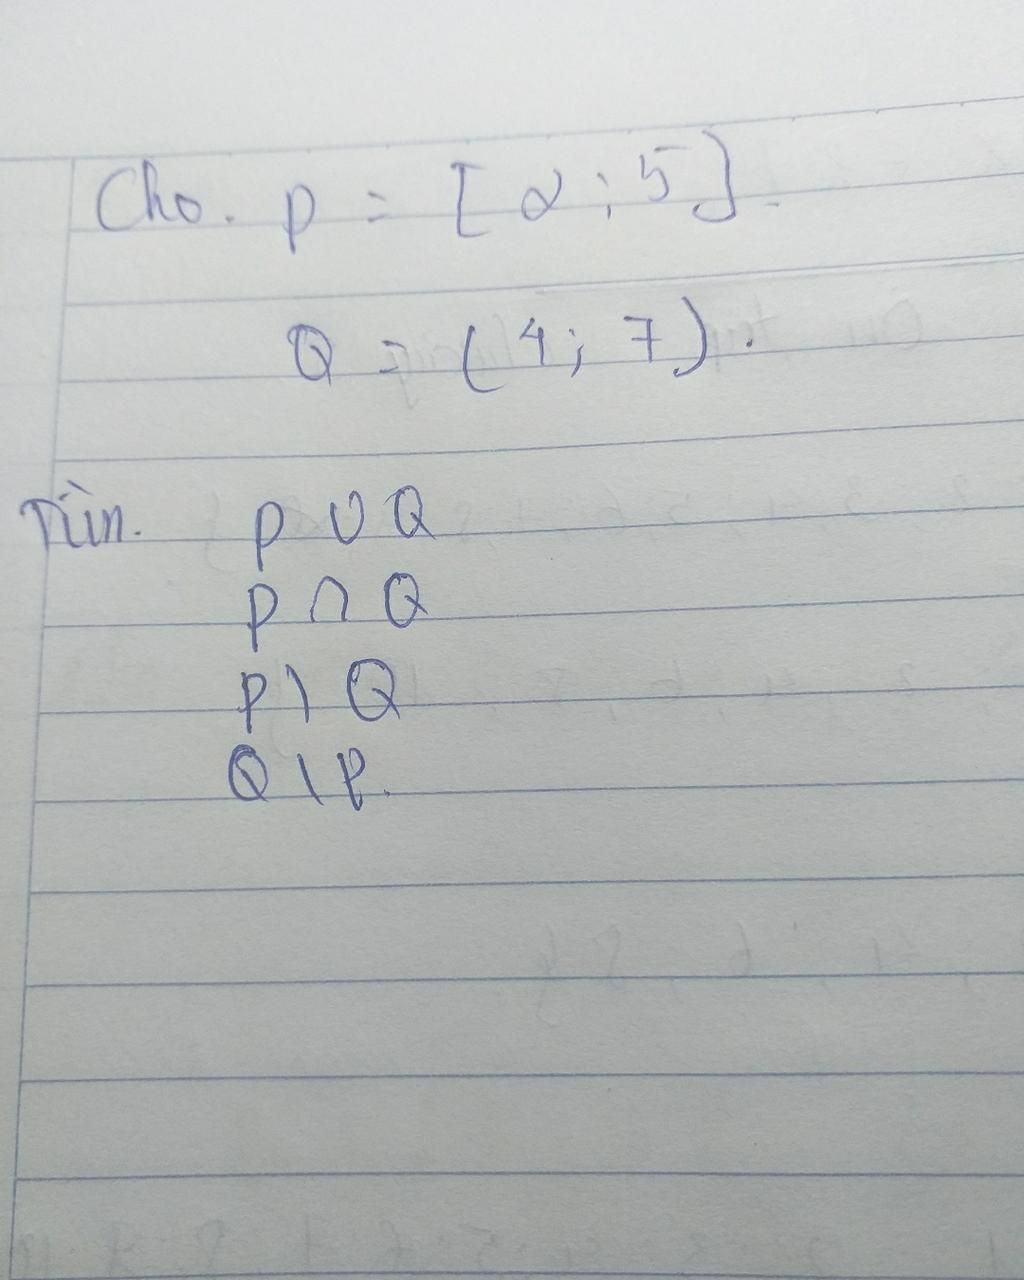 Cho. P = [2; 5].
Q = (4; 7).
Tìm. P ∪ Q
P ∩ Q
P \ Q
Q \ P.